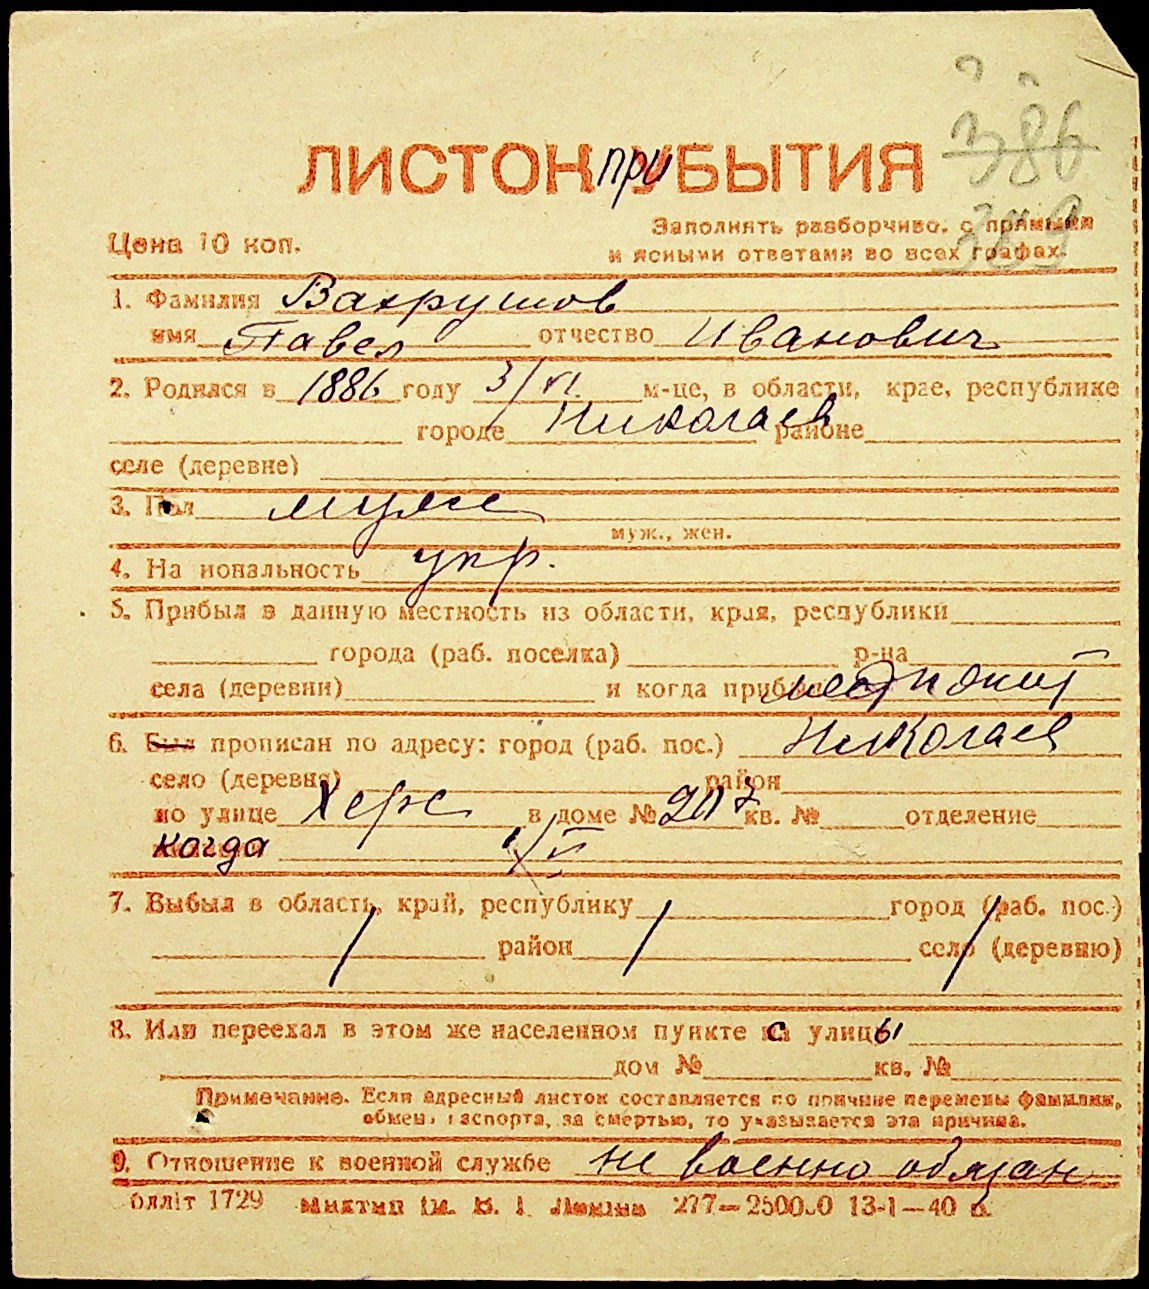 386
389
ЛИСТОК приБЫТИЯ
Цена 10 коп.
Заполнять разборчиво, с прямыми
и ясными ответами во всех графах.
1. Фамилия Вахрушов
имя Павел отчество Иванович
2. Родился в 1886 году 3/VI. м-це, в области, крае, республике
городе Николаев районе
селе (деревне)
3. Пол муж
муж., жен.
4. На иональность укр.
5. Прибыл в данную местность из области, края, республики
города (раб. поселка) р-на
села (деревни) и когда прибыл
6. Был прописан по адресу: город (раб. пос.) Николаев
село (деревня) район
по улице Херс в доме № 207 кв. № отделение
когда 1/VI
7. Выбыл в область, край, республику город (раб. пос.)
район село (деревню)
8. Или переехал в этом же населенном пункте с улицы
дом № кв. №
Примечание. Если адресный листок составляется по причине перемены фамилии,
обмена паспорта, за смертью, то указывается эта причина.
9. Отношение к военной службе не военно обязан
блліт 1729 277—250000 13-1—40 в.